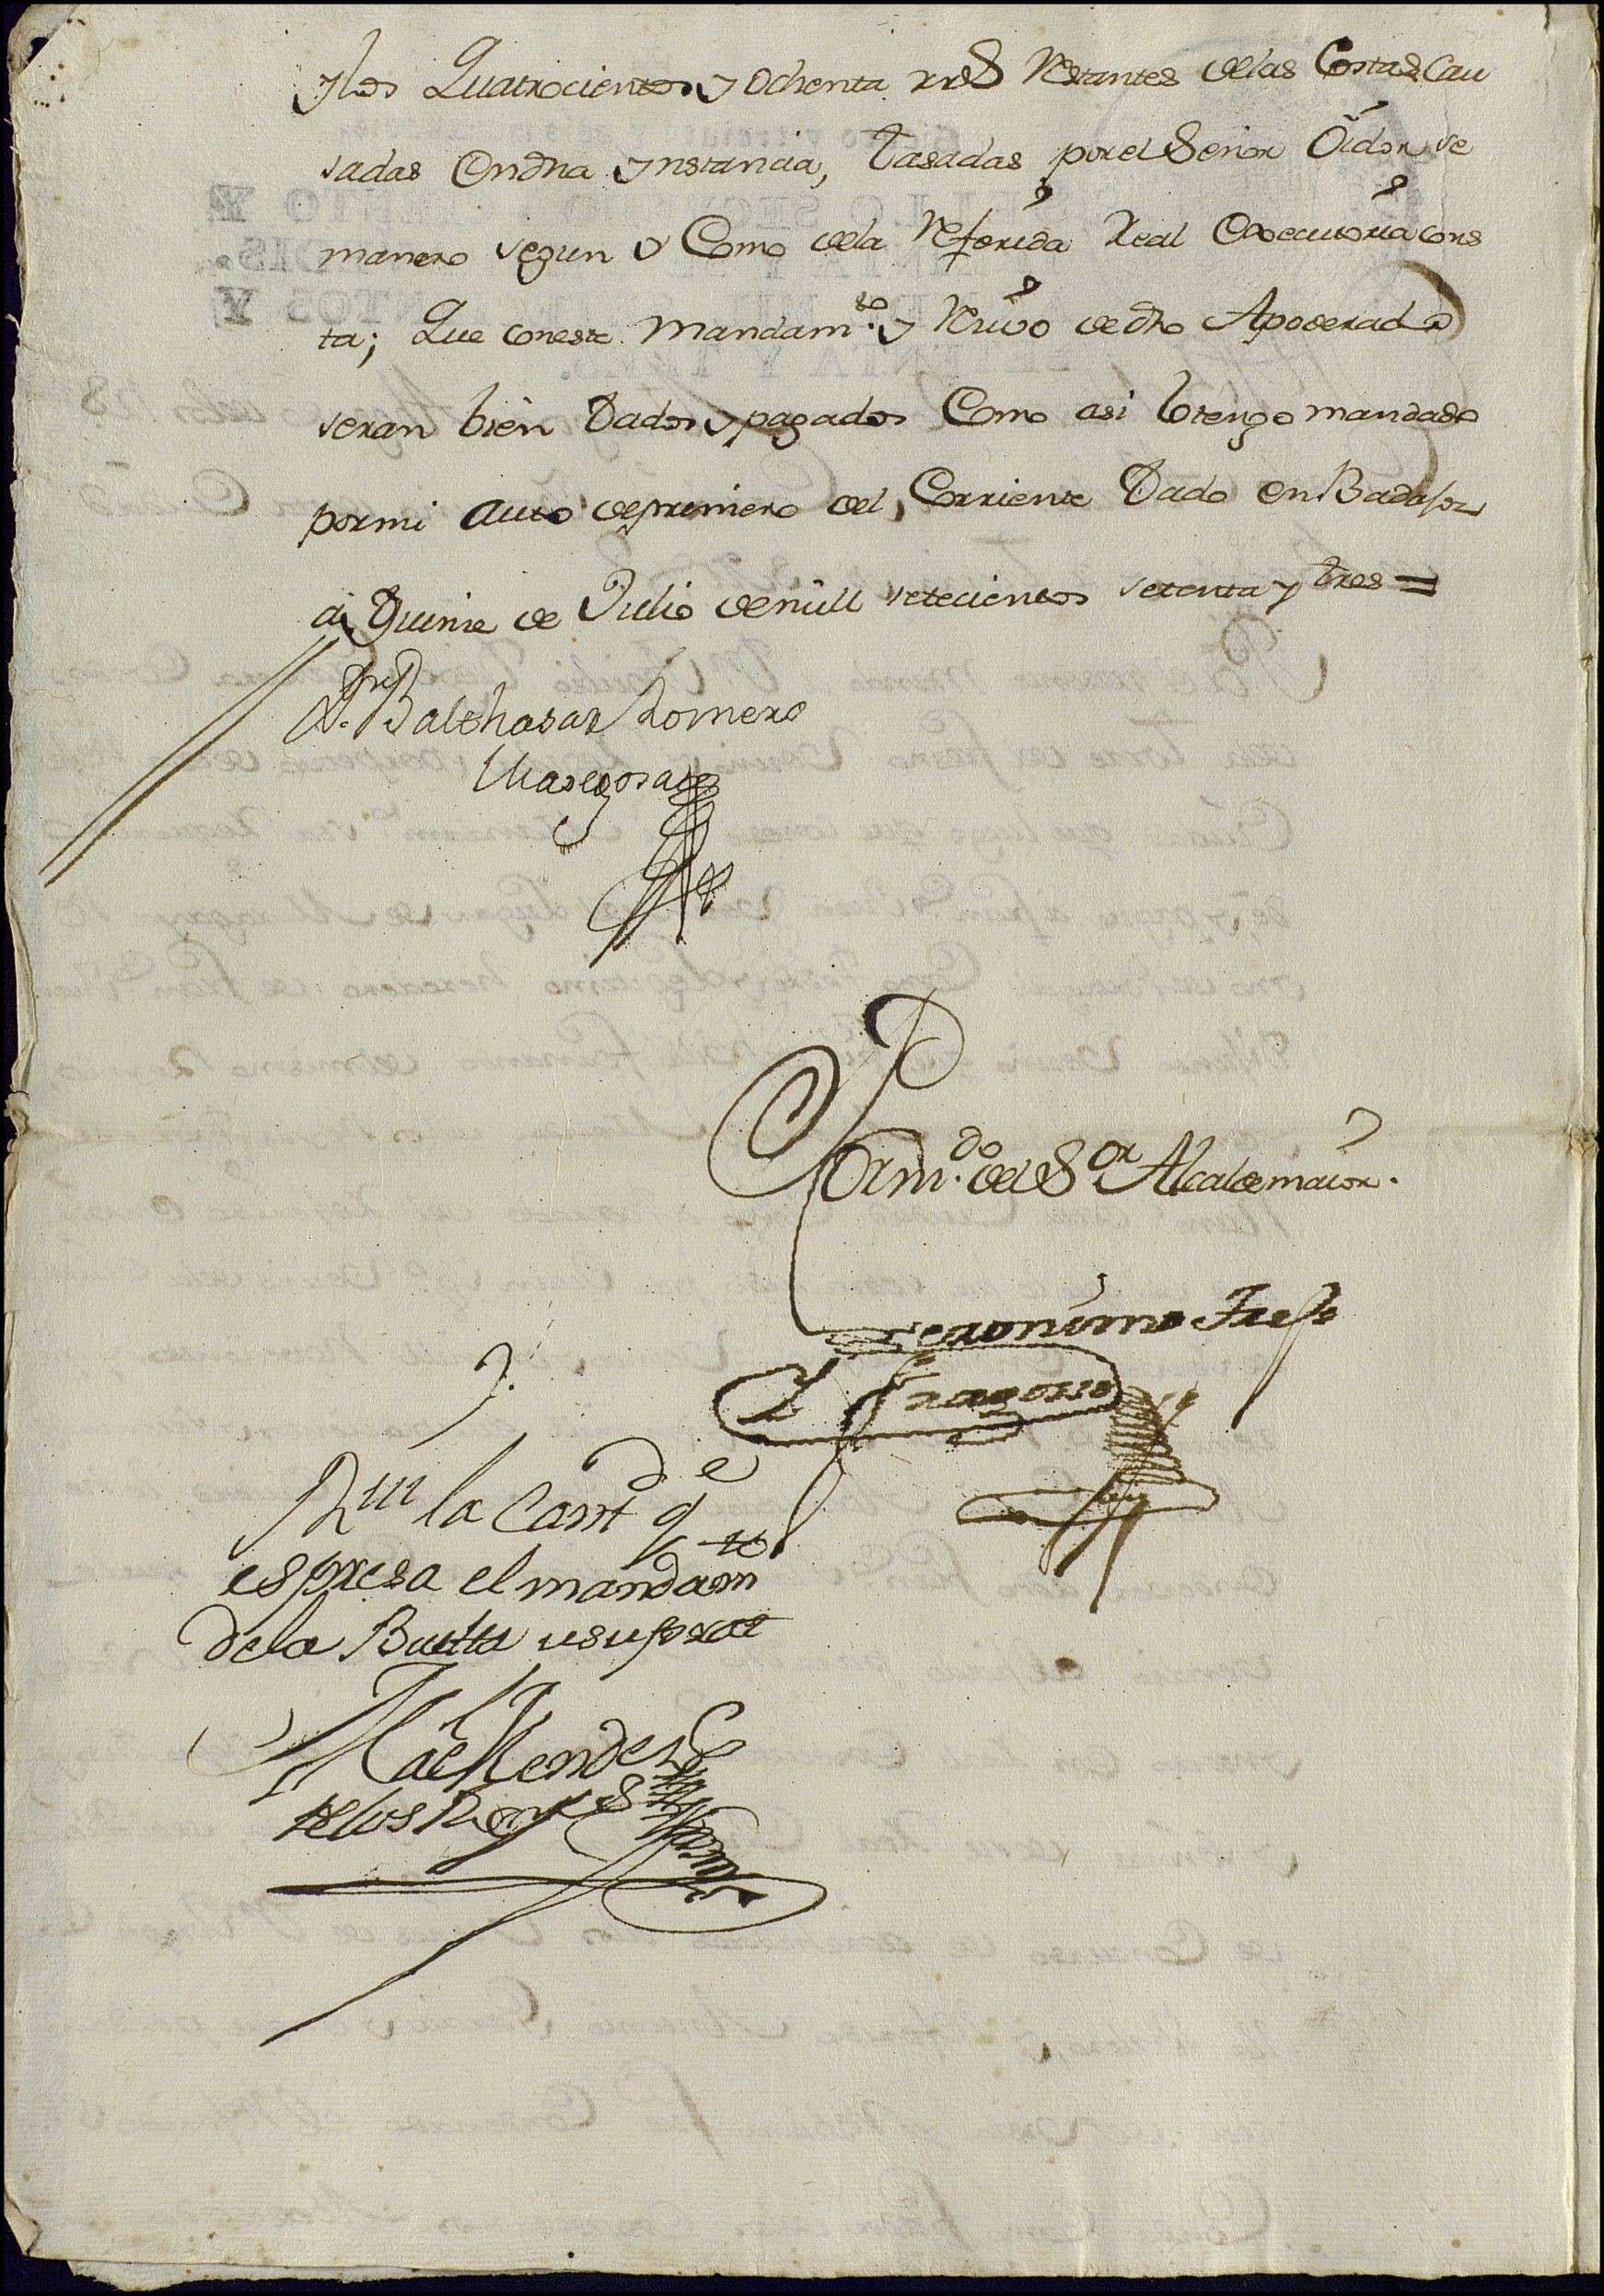 y los Quatrocientos y Ochenta rrs Restantes de las Costas Cau
sadas en dha ynstancia, tasadas por el Señor Oidor se
manero segun y Como de la Referida Real Executoria cons
ta; Que con este mandamto. y Rivo de dho Apoderado
seran bien Dados y pagados Como asi lo tengo mandado
por mi auto de primero del Corriente Dado en Badajoz
a Quinse de Julio de mill setecientos setenta y tres =
Dn. Balthasar Romero
Masegosa
Por mdo. del Sor Alcalde maior.
Geronimo
y Fragosso
Rvi la Cantd qe
espresa el mandamto
de la Buelta
Mendez
de los Reyes